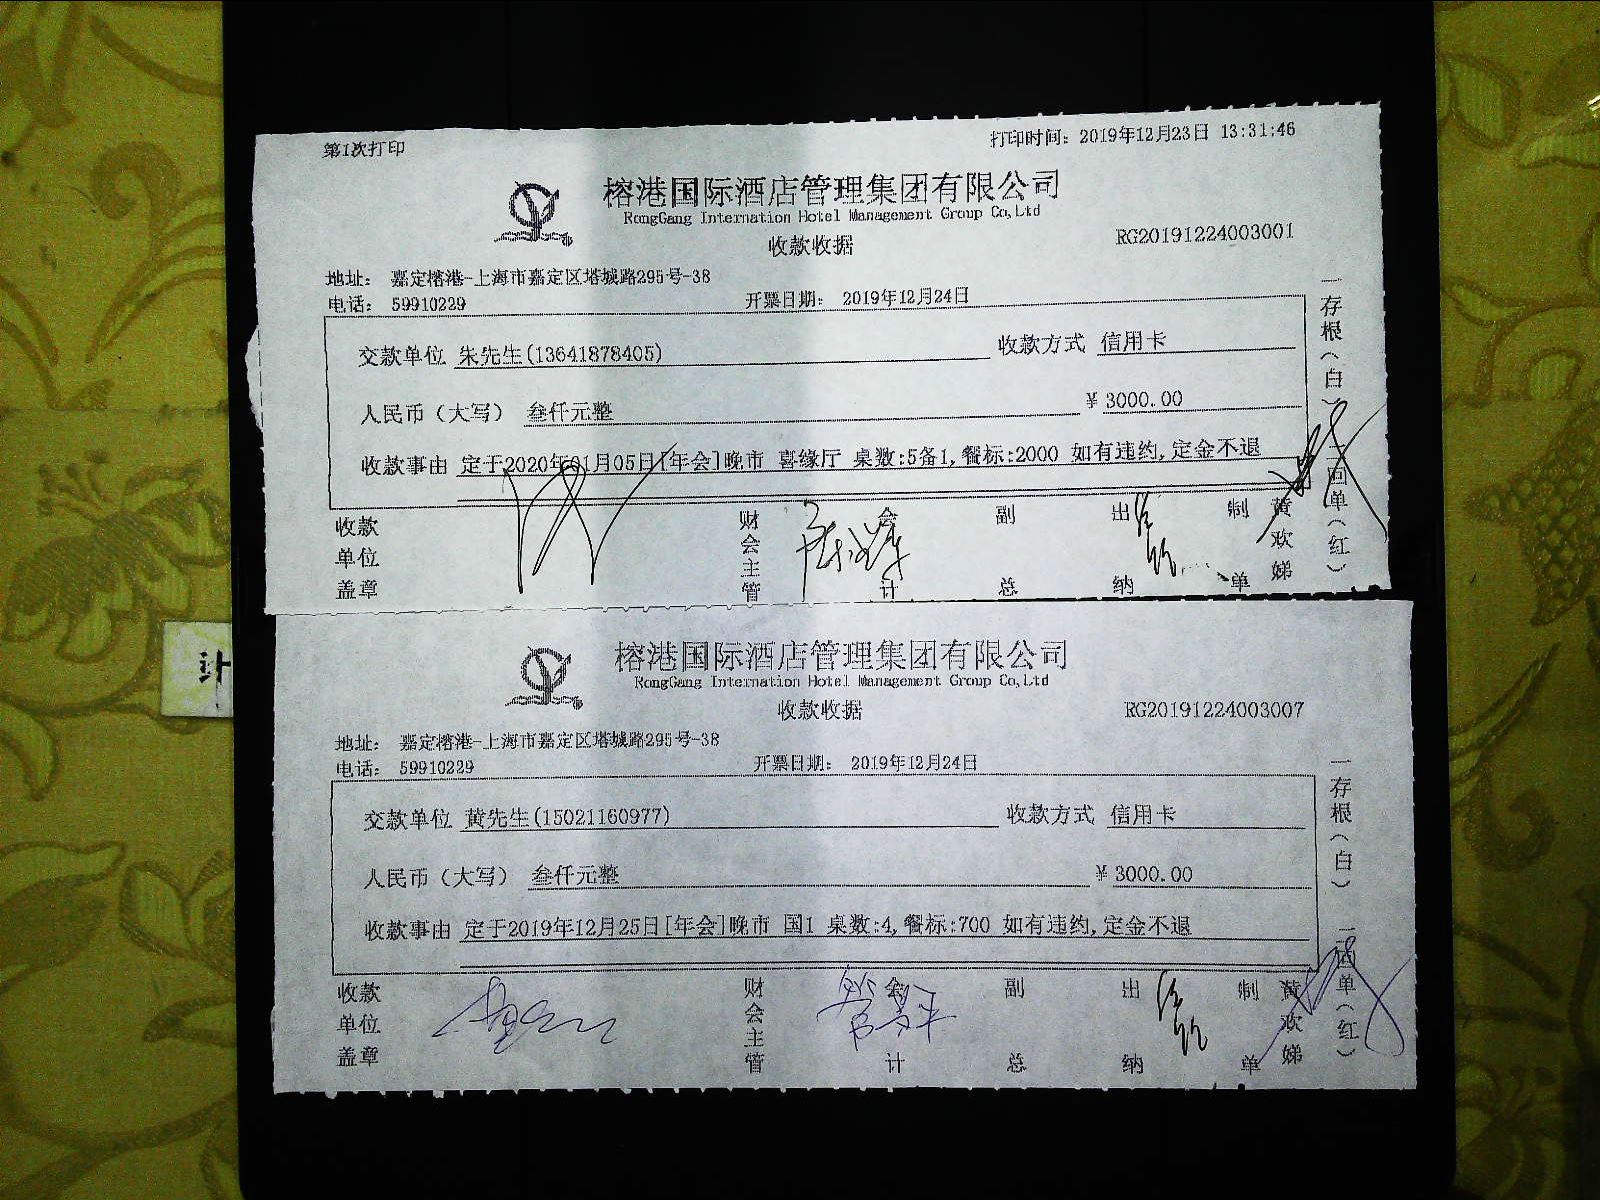 第1次打印 打印时间：2019年12月23日 13:31:46
榕港国际酒店管理集团有限公司
RongGang Internation Hotel Management Group Co,Ltd
收款收据 RG20191224003001
地址： 嘉定榕港-上海市嘉定区塔城路295号-38
电话： 59910229 开票日期： 2019年12月24日
交款单位 朱先生(13641878405) 收款方式 信用卡
人民币（大写） 叁仟元整 ¥ 3000.00
收款事由 定于2020年01月05日[年会]晚市 喜缘厅 桌数:5备1,餐标:2000 如有违约,定金不退
收款单位盖章 财会主管 会计 副总 出纳 制单 黄欢娣
一存根（白） 二回单（红）
榕港国际酒店管理集团有限公司
RongGang Internation Hotel Management Group Co,Ltd
收款收据 RG20191224003007
地址： 嘉定榕港-上海市嘉定区塔城路295号-38
电话： 59910229 开票日期： 2019年12月24日
交款单位 黄先生(15021160977) 收款方式 信用卡
人民币（大写） 叁仟元整 ¥ 3000.00
收款事由 定于2019年12月25日[年会]晚市 国1 桌数:4,餐标:700 如有违约,定金不退
收款单位盖章 财会主管 会计 副总 出纳 制单 黄欢娣
一存根（白） 二回单（红）